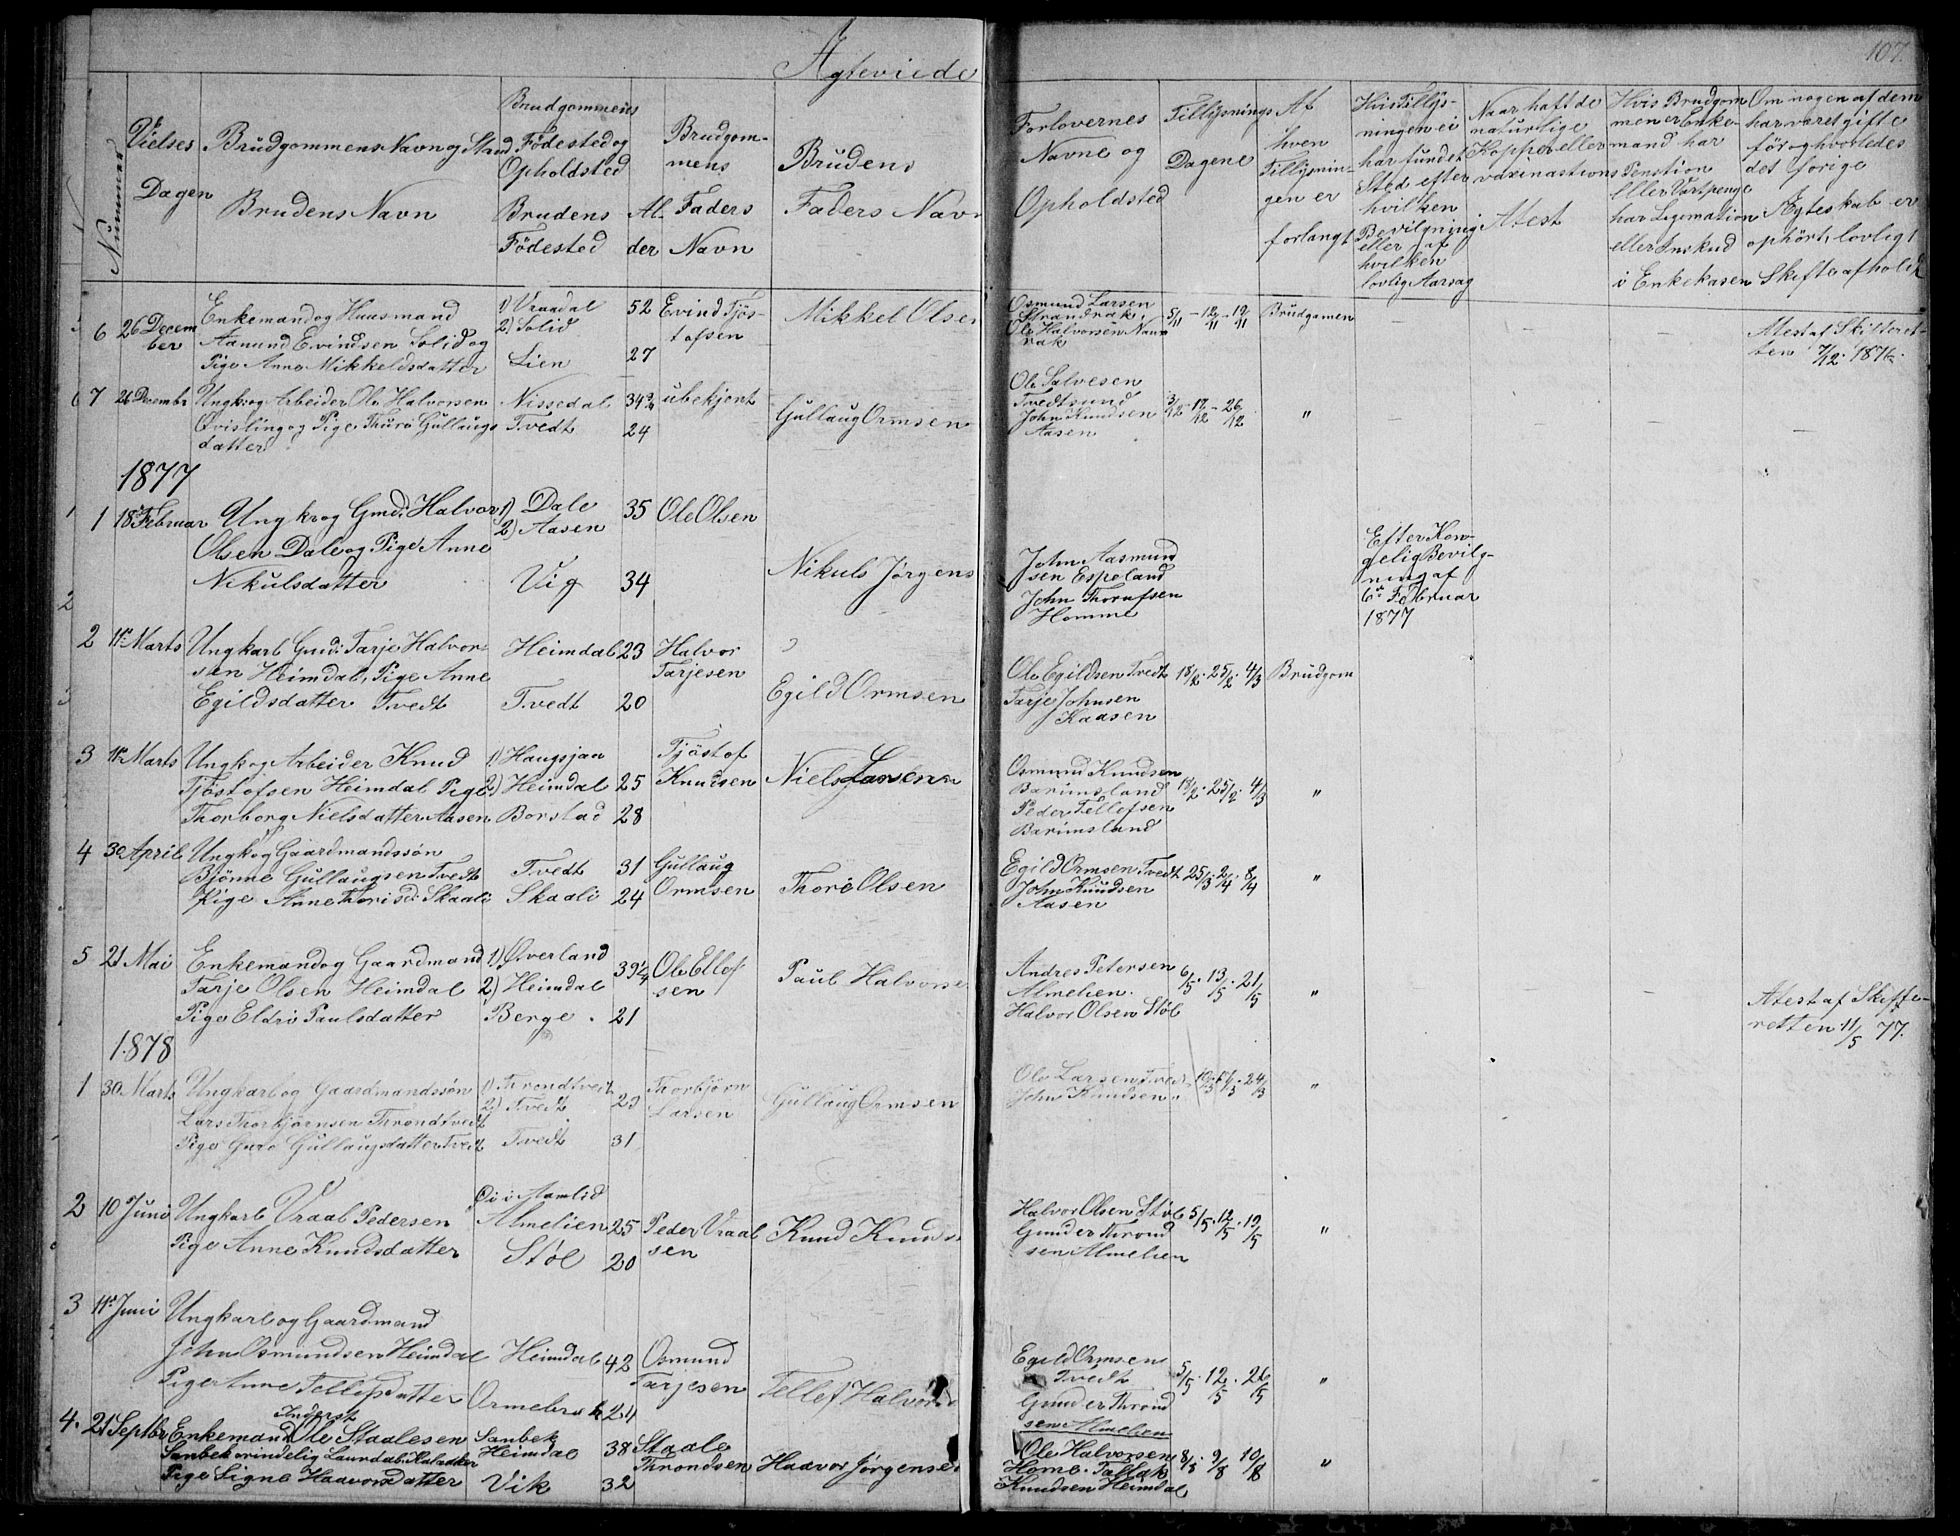 Ægteviede
107.
Nummer
Vielses
Dagen
Brudgommens Navn og Stand
Brudens Navn
Brudgommens
Födested og
Opholdsted
Brudens
Födested
Al-
der
Brudgom-
mens
Faders
Navn
Brudens
Faders Navn
Forlovernes
Navne og
Opholdsted
Tillysnings
Dagene
Af
hven
Tillysnin-
gen er
forlangt
Hvis Tillys-
ningen ei
har fundet
Sted efter
hvilken
Bevilgning
eller af
hvilken
lovlig Aarsag
Naar haft de
naturlige
Kopper eller
vaxinastions
Atest
Hvis Brudgom
men er Enke-
mand har
Penstion
eller Vartpenge
har Legimation
eller Inskud
i Enkekasen
Om nogen af dem
har været gifte
för og hvorledes
det forige
Ægteskab er
ophört, lovligt
Skifte afholdt
6 26 Decem
ber
Enkemand og Huusmand
Aanund Evindsen Solid og
Pige Anne Mikkelsdatter
1) Vraadal
2) Solid
Lien
52
27
Evind Tjös-
tofsen
Mikkel Olsen
Osmund Larsen
Strandrak,
Ole Halvorsen Nav
rak
5/11 - 12/11 - 19/11
Brudgomen
Atest af Skifteret-
ten 7/12. 1876.
7 26 Decembr
Ungk. og Arbeider Ole Halvorsen
Qvisling og Pige Thurö Gullaugs
datter
Nissedal
Tvedt
34 3/4
24
ubekjent
Gullaug Ormsen
Ole Salvesen
Tvedtsund
John Knudsen
Aasen
3/12 - 17/12 - 26/12
"
1877
1 18de Februar
Ungkr og Gmd. Halvor
Olsen Dale og Pige Anne
Nikulsdatter
1) Dale
2) Aasen
Vig
35
34
Ole Olsen
Nikuls Jörgens
John Aasmund
sen Espeland
John Thorufsen
Homme
Efter Kon-
gelig Bevilg-
ning af
6te Februar
1877
2 11te Marts
Ungkarl Gmd: Tarje Halvor-
sen Heimdal, Pige Anne
Egildsdatter Tvedt
Heimdal
Tvedt
23
20
Halvor
Tarjesen
Egild Ormsen
Ole Egildsen Tvedt
Tarje Johnsen
Kaasen
18/2. 25/2. 4/3
Brudgom
3 11te Marts
Ungk og Arbeider Knud
Tjöstofsen Heimdal Pige
Thorborg Nielsdatter Aasen
1) Haugsjaa
2) Heimdal
Borstad
25
28
Tjöstof
Knudsen
Niels Larsen
Osmund Knudsen
Barimsland
Peder Tellefsen
Barimsland
18/2. 25/2. 4/3
"
4 30 April
Ungk og Gaardmandssön
Bjönne Gullaugsen Tvedt
Pige Anne Thorisd: Skaali
Tvedt
Skaali
31
24
Gullaug
Ormsen
Thore Olsen
Egild Ormsen Tvedt
John Knudsen
Aasen
25/3. 2/4. 8/4
"
5 21 Mai
Enkemand og Gaardmand
Tarje Olsen Heimdal
Pige Eldri Paulsdatter
1) Øverland
2) Heimdal
Berge.
39 1/4
21
Ole Ellef
sen
Paul Halvorse
Andres Petersen
Almelien.
Halvor Olsen Stöl
6/5. 13/5. 21/5
"
Atest af Skifte-
retten 11/5 77.
1878
1 30 Marts
Ungkarl og Gaardmandssön
Lars Thorbjörnsen Throndtvedt
Pige Guro Gullaugsdatter Tvedt
1) Throndtvedt
2) Tvedt
Tvedt
23
31
Thorbjörn
Larsen
Gullaug Ormsen
Ole Larsen Tvedt
John Knudsen.
10/3. 17/3. 24/3
"
2 10 Juni
Ungkarl Vraal Pedersen
Pige Anne Knudsdatter
Øi i Aamlid
Almelien
Stöl
25
20
Peder Vraal
sen
Knud Knuds
Halvor Olsen Stöl
Gunder Thrond
sen Almelien
5/5. 12/5. 19/5
"
3 11te Juni
Ungkarl og Gaardmand
John Osmundsen Heimdal
Pige Anne Tellefsdatter
Heimdal
42
24
Osmund
Tarjesen
Tellef Halvors
Egild Ormsen
Tvedt
Gunder Thrond
sen Almelien
5/5. 12/5. 26/5
"
4. 21 Septbr
Inderst
Enkemand Ole Staalesen
Sanbek orindelig Laurdal.
Pige Signe Haavorsdatter
Sanbek
Heimdal
Vik
38
32
Staale
Throndsen
Haavor Jörgensen
Ole Halvorsen
Home. Tallak
Knudsen Heimdal
8/8. 9/8 10/8
"